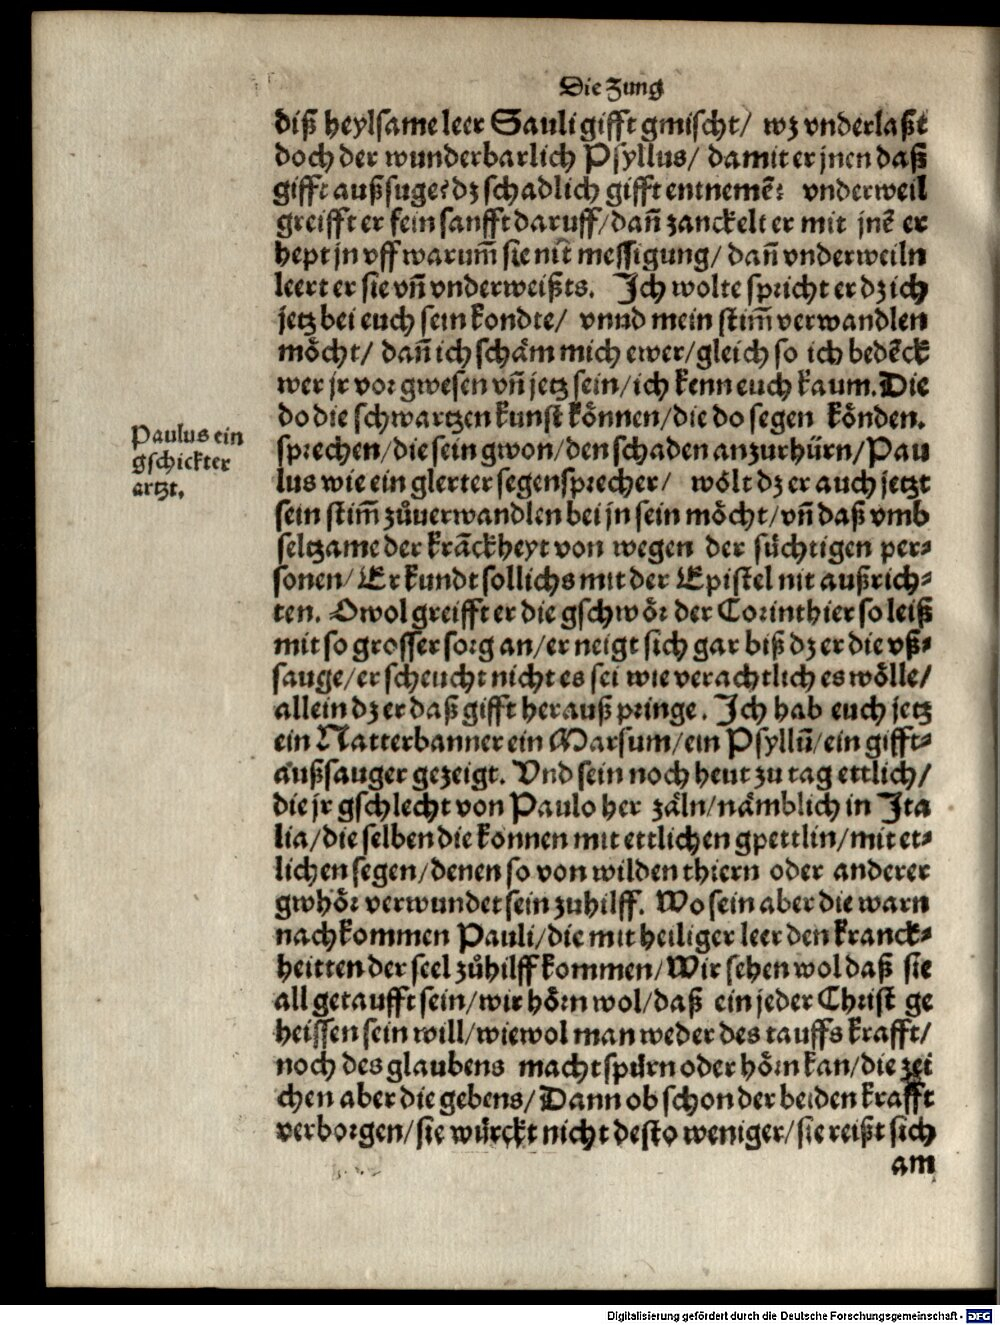 Die Zung
diß heylsame leer Sauli gifft gmischt/ wz vnderlaßt
doch der wunderbarlich Psyllus/ damit er jnen daß
gifft außsuge? dz schadlich gifft entnemẽ? vnderweil
greifft er fein sanfft daruff/ dañ zanckelt er mit jnẽ er
hept jn vff warum̃ sie nit messigung/ dañ vnderweiln
leert er sie vñ vnderweißts. Ich wolte spricht er dz ich
jetz bei euch sein kondte/ vnnd mein stim̃ verwandlen
möcht/ dañ ich schäm mich ewer/ gleich so ich bedẽck
wer jr vor gwesen vñ jetz sein/ ich kenn euch kaum. Die
do die schwartzen kunst können/ die do segen könden.
sprechen/ die sein gwon/ den schaden anzurhürn/ Pau
lus wie ein glerter segensprecher/ wölt dz er auch jetzt
sein stim̃ zůuerwandlen bei jn sein möcht/ vñ daß vmb
seltzame der krãckheyt von wegen der süchtigen per⸗
sonen/ Er kundt sollichs mit der Epistel nit außrich⸗
ten. O wol greifft er die gschwör der Corinthier so leiß
mit so grosser sorg an/ er neigt sich gar biß dz er die vß⸗
sauge/ er scheucht nicht es sei wie verachtlich es wölle/
allein dz er daß gifft herauß pringe. Ich hab euch jetz
ein Natterbanner ein Marsum/ ein Psyllũ/ ein gifft⸗
außsauger gezeigt. Vnd sein noch heut zu tag ettlich/
die jr gschlecht von Paulo her zäln/ nämblich in Ita
lia/ die selben die konnen mit ettlichen gpettlin/ mit et⸗
lichen segen/ denen so von wilden thiern oder anderer
gwhör verwundet sein zuhilff. Wo sein aber die warn
nachkommen Pauli/ die mit heiliger leer den kranck⸗
heitten der seel zůhilff kommen/ Wir sehen wol daß sie
all getaufft sein/ wir hörn wol/ daß ein jeder Christ ge
heissen sein will/ wiewol man weder des tauffs krafft/
noch des glaubens macht spürn oder hörn kan/ die zei
chen aber die gebens/ Dann ob schon der beiden krafft
verborgen/ sie würckt nicht desto weniger/ sie reißt sich
am
Paulus ein
gschickter
artzt.
Digitalisierung gefördert durch die Deutsche Forschungsgemeinschaft - DFG